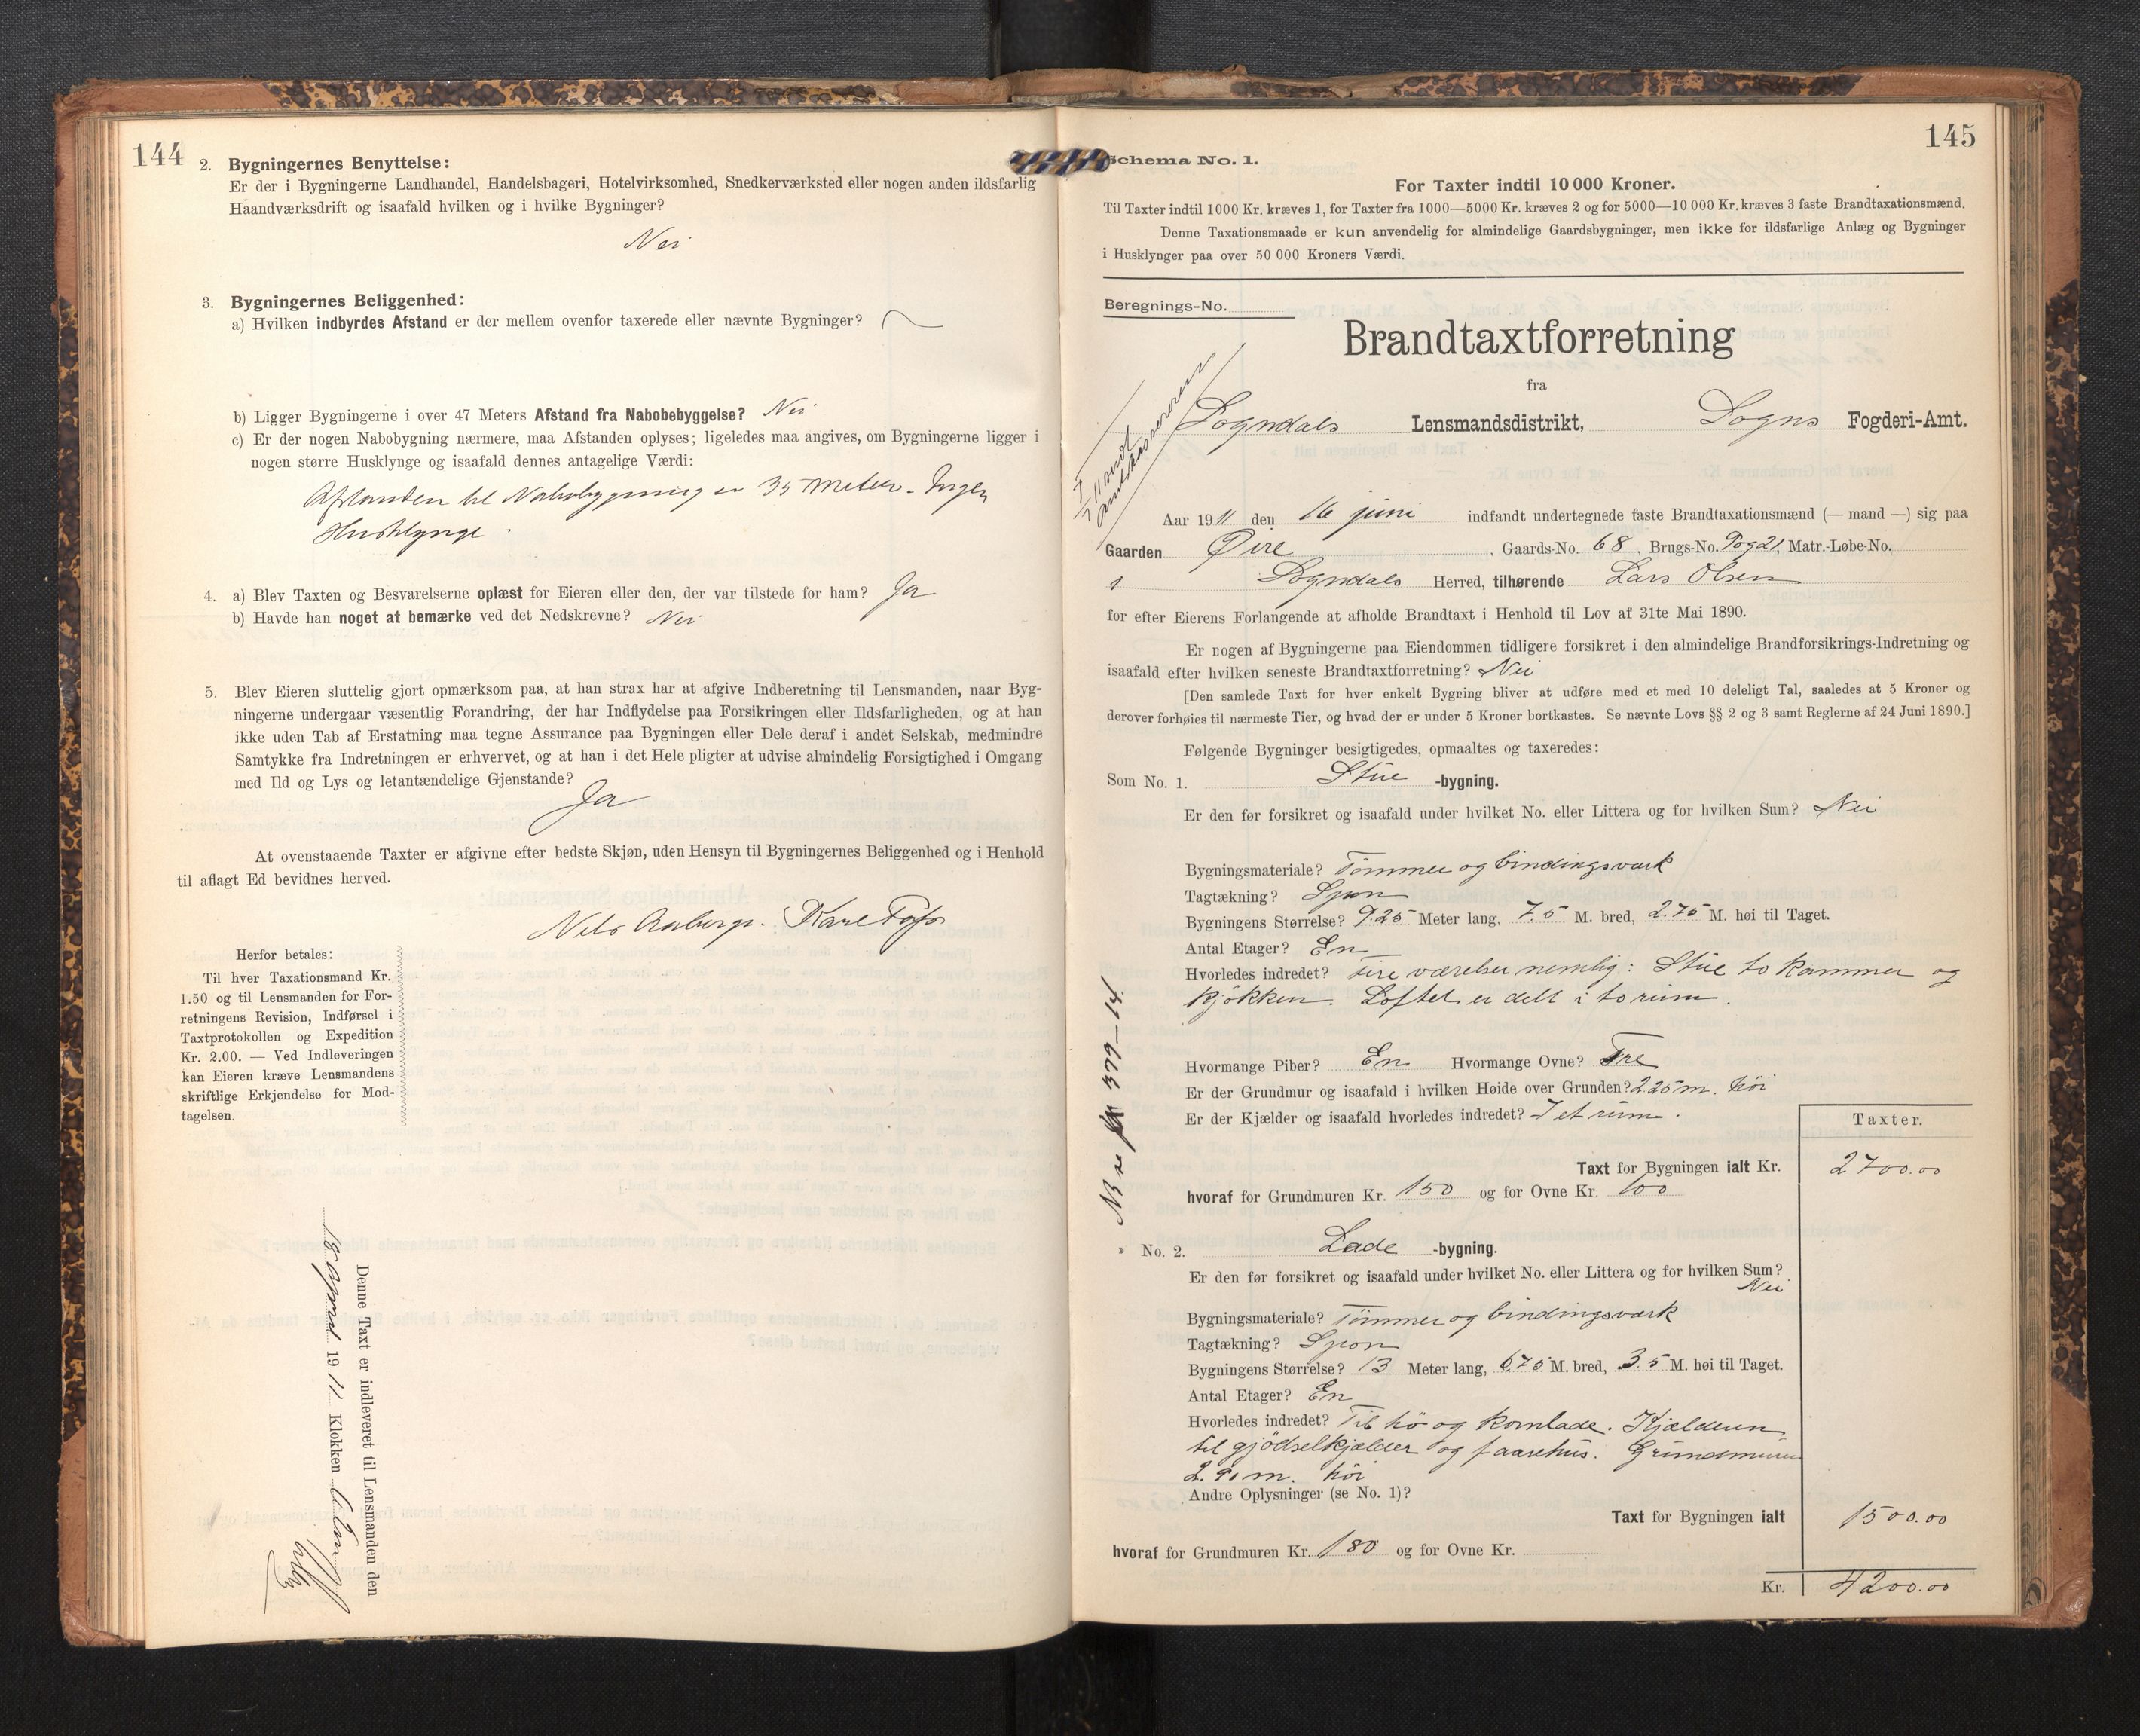 144
2. Bygningernes Benyttelse:
Er der i Bygningerne Landhandel, Handelsbageri, Hotelvirksomhed, Snedkerværksted eller nogen anden ildsfarlig
Haandværksdrift og isaafald hvilken og i hvilke Bygninger?
Nei
3. Bygningernes Beliggenhed:
a) Hvilken indbyrdes Afstand er der mellem ovenfor taxerede eller nævnte Bygninger?
b) Ligger Bygningerne i over 47 Meters Afstand fra Nabobebyggelse? Nei
c) Er der nogen Nabobygning nærmere, maa Afstanden oplyses; ligeledes maa angives, om Bygningerne ligger i
nogen større Husklynge og isaafald dennes antagelige Værdi:
Afstanden til Nabobygning er 35 meter. Ingen
Husklynge.
4. a) Blev Taxten og Besvarelserne oplæst for Eieren eller den, der var tilstede for ham? Ja
b) Havde han noget at bemærke ved det Nedskrevne? Nei
5. Blev Eieren sluttelig gjort opmærksom paa, at han strax har at afgive Indberetning til Lensmanden, naar Byg-
ningerne undergaar væsentlig Forandring, der har Indflydelse paa Forsikringen eller Ildsfarligheden, og at han
ikke uden Tab af Erstatning maa tegne Assurance paa Bygningen eller Dele deraf i andet Selskab, medmindre
Samtykke fra Indretningen er erhvervet, og at han i det Hele pligter at udvise almindelig Forsigtighed i Omgang
med Ild og Lys og letantændelige Gjenstande?
Ja
At ovenstaaende Taxter er afgivne efter bedste Skjøn, uden Hensyn til Bygningernes Beliggenhed og i Henhold
til aflagt Ed bevidnes herved.
Nils Aaberge. Kare
Herfor betales:
Til hver Taxationsmand Kr.
1.50 og til Lensmanden for For-
retningens Revision, Indførsel i
Taxtprotokollen og Expedition
Kr. 2.00. — Ved Indleveringen
kan Eieren kræve Lensmandens
skriftlige Erkjendelse for Mod-
tagelsen.
Denne Taxt er indleveret til Lensmanden den
18 april 1911 Klokken
145
Schema No. 1.
For Taxter indtil 10 000 Kroner.
Til Taxter indtil 1000 Kr. kræves 1, for Taxter fra 1000—5000 Kr. kræves 2 og for 5000—10 000 Kr. kræves 3 faste Brandtaxationsmænd.
Denne Taxationsmaade er kun anvendelig for almindelige Gaardsbygninger, men ikke for ildsfarlige Anlæg og Bygninger
i Husklynger paa over 50 000 Kroners Værdi.
Beregnings-No.
Brandtaxtforretning
fra
Sogndals Lensmandsdistrikt, Sogns Fogderi-Amt.
Aar 1911 den 16 juni indfandt undertegnede faste Brandtaxationsmænd (— mand —) sig paa
Gaarden Øire, Gaards-No. 68, Brugs-No. 9 og 21, Matr.-Løbe-No.
i Sogndals Herred, tilhørende Lars Olsen
for efter Eierens Forlangende at afholde Brandtaxt i Henhold til Lov af 31te Mai 1890.
Er nogen af Bygningerne paa Eiendommen tidligere forsikret i den almindelige Brandforsikrings-Indretning og
isaafald efter hvilken seneste Brandtaxtforretning? Nei
[Den samlede Taxt for hver enkelt Bygning bliver at udføre med et med 10 deleligt Tal, saaledes at 5 Kroner og
derover forhøies til nærmeste Tier, og hvad der er under 5 Kroner bortkastes. Se nævnte Lovs §§ 2 og 3 samt Reglerne af 24 Juni 1890.]
Følgende Bygninger besigtigedes, opmaaltes og taxeredes:
Som No. 1. Stue -bygning.
Er den før forsikret og isaafald under hvilket No. eller Littera og for hvilken Sum? Nei
Bygningsmateriale? Tömmer og bindingsværk
Tagtækning? Spon
Bygningens Størrelse? 9.25 Meter lang, 7.5 M. bred, 2.75 M. høi til Taget.
Antal Etager? En
Hvorledes indredet? Fire værelser nemlig: Stue to kammer og
kjökken. Loftet er delt i to rum.
Hvormange Piber? En Hvormange Ovne? Tre
Er der Grundmur og isaafald i hvilken Høide over Grunden? 2.25 m. höi
Er der Kjælder og isaafald hvorledes indredet? I et rum.
Taxter.
Taxt for Bygningen ialt Kr. 2700.00
hvoraf for Grundmuren Kr. 150 og for Ovne Kr. 100
" No. 2. Lade -bygning.
Er den før forsikret og isaafald under hvilket No. eller Littera og for hvilken Sum?
Nei
Bygningsmateriale? Tömmer og bindingsværk
Tagtækning? Spon
Bygningens Størrelse? 13 Meter lang, 6.75 M. bred, 3.5 M. høi til Taget.
Antal Etager? En
Hvorledes indredet? Til hö og kornlade. Kjælderen
til gjödselkjælder og faarehus. Grundmuren
2.90 m. höi
Andre Oplysninger (se No. 1)?
Taxt for Bygningen ialt 1500.00
hvoraf for Grundmuren Kr. 180 og for Ovne Kr.
Kr. 4200.00